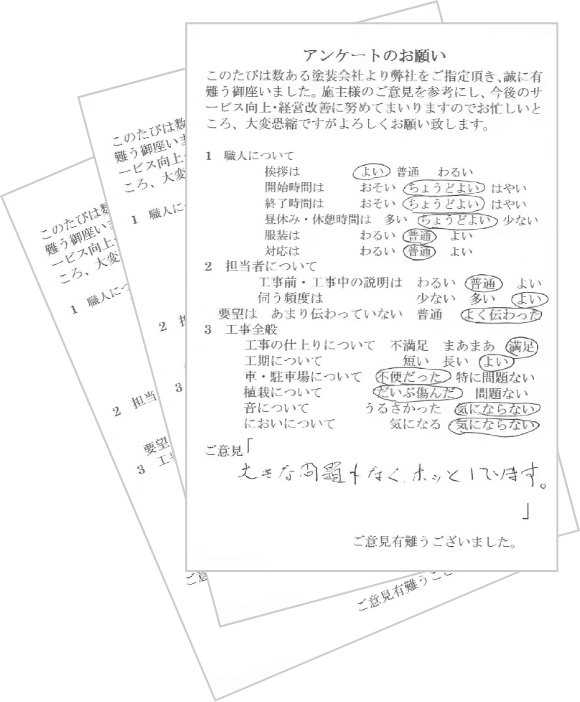 アンケートのお願い
このたびは数ある塗装会社より弊社をご指定頂き、誠に有
難う御座いました。施主様のご意見を参考にし、今後のサ
ービス向上・経営改善に努めてまいりますのでお忙しいと
ころ、大変恐縮ですがよろしくお願い致します。
1 職人について
挨拶は よい 普通 わるい
開始時間は おそい ちょうどよい はやい
終了時間は おそい ちょうどよい はやい
昼休み・休憩時間は 多い ちょうどよい 少ない
服装は わるい 普通 よい
対応は わるい 普通 よい
2 担当者について
工事前・工事中の説明は わるい 普通 よい
伺う頻度は 少ない 多い よい
要望は あまり伝わっていない 普通 よく伝わった
3 工事全般
工事の仕上りについて 不満足 まあまあ 満足
工期について 短い 長い よい
車・駐車場について 不便だった 特に問題ない
植栽について だいぶ傷んだ 問題ない
音について うるさかった 気にならない
においについて 気になる 気にならない
ご意見「
大きな問題もなく、ホッとしています。
」
ご意見有難うございました。
このたびは数
難う御座いま
ービス向上
ころ、大変
1 職人に
2 担
3
ご意見有難うござ
このたびは数
難う御座い
ービス向上
ころ、大
1 職人につ
2 担当
要望
3 工事
ご意